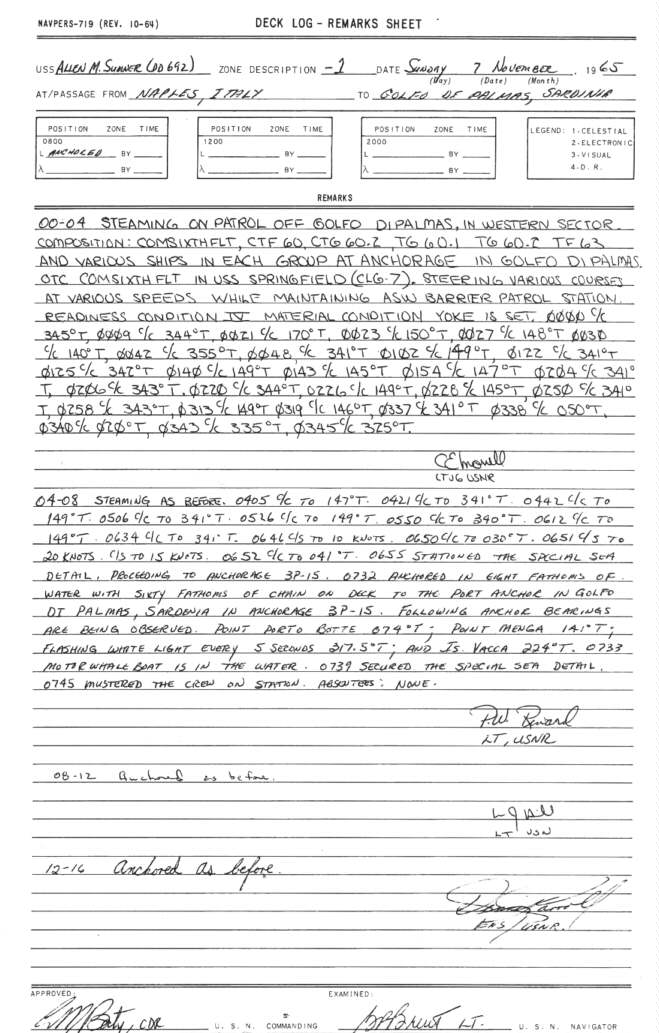 NAVPERS-719 (REV. 10-64) DECK LOG - REMARKS SHEET
USS ALLEN M. SUMNER (DD 692) ZONE DESCRIPTION -1 DATE SUNDAY 7 NOVEMBER, 1965
(Day) (Date) (Month)
AT/PASSAGE FROM NAPLES, ITALY TO GOLFO DE PALMAS, SARDINIA
POSITION ZONE TIME POSITION ZONE TIME POSITION ZONE TIME LEGEND: 1-CELESTIAL
0800 1200 2000 2-ELECTRONIC
L ANCHORED BY L BY L BY 3-VISUAL
λ BY λ BY λ BY 4-D. R.
REMARKS
00-04 STEAMING ON PATROL OFF GOLFO DI PALMAS, IN WESTERN SECTOR.
COMPOSITION: COMSIXTHFLT, CTF 60, CTG 60.2, TG 60.1 TG 60.2 TF 63
AND VARIOUS SHIPS IN EACH GROUP AT ANCHORAGE IN GOLFO DI PALMAS.
OTC COMSIXTHFLT IN USS SPRINGFIELD (CLG-7). STEERING VARIOUS COURSES
AT VARIOUS SPEEDS WHILE MAINTAINING ASW BARRIER PATROL STATION.
READINESS CONDITION IV MATERIAL CONDITION YOKE IS SET. 0000 C/C
345°T, 0009 C/C 344°T, 0021 C/C 170°T, 0023 C/C 150°T, 0027 C/C 148°T 0030
C/C 140°T, 0042 C/C 355°T, 0048, C/C 341°T 0102 C/C 149°T, 0122 C/C 341°T
0125 C/C 342°T 0140 C/C 149°T 0143 C/C 145°T 0154 C/C 147°T 0204 C/C 341°
T, 0206 C/C 343°T, 0220 C/C 344°T, 0226 C/C 149°T, 0228 C/C 145°T, 0250 C/C 341°
T, 0258 C/C 343°T, 0313 C/C 149°T 0319 C/C 146°T, 0337 C/C 341°T 0338 C/C 050°T,
0340 C/C 020°T, 0343 C/C 335°T, 0345 C/C 325°T.
LTJG USNR
04-08 STEAMING AS BEFORE. 0405 C/C TO 147°T. 0421 C/C TO 341°T. 0442 C/C TO
149°T. 0506 C/C TO 341°T. 0526 C/C TO 149°T. 0550 C/C TO 340°T. 0612 C/C TO
149°T. 0634 C/C TO 341°T. 0646 C/S TO 10 KNOTS. 0650 C/C TO 030°T. 0651 C/S TO
20 KNOTS. C/S TO 15 KNOTS. 0652 C/C TO 041°T. 0655 STATIONED THE SPECIAL SEA
DETAIL, PROCEEDING TO ANCHORAGE 3P-15. 0732 ANCHORED IN EIGHT FATHOMS OF
WATER WITH SIXTY FATHOMS OF CHAIN ON DECK TO THE PORT ANCHOR IN GOLFO
DI PALMAS, SARDENIA IN ANCHORAGE 3P-15. FOLLOWING ANCHOR BEARINGS
ARE BEING OBSERVED. POINT PORTO BOTTE 074°T; POINT MENGA 141°T;
FLASHING WHITE LIGHT EVERY 5 SECONDS 317.5°T; AND IS. VACCA 224°T. 0733
MOTOR WHALE BOAT IS IN THE WATER. 0739 SECURED THE SPECIAL SEA DETAIL.
0745 MUSTERED THE CREW ON STATION. ABSENTEES: NONE.
LT, USNR
08-12 Anchored as before.
LT USN
12-16 Anchored as before.
ENS/USNR.
APPROVED: EXAMINED:
CDR U. S. N. COMMANDING LT. U. S. N. NAVIGATOR